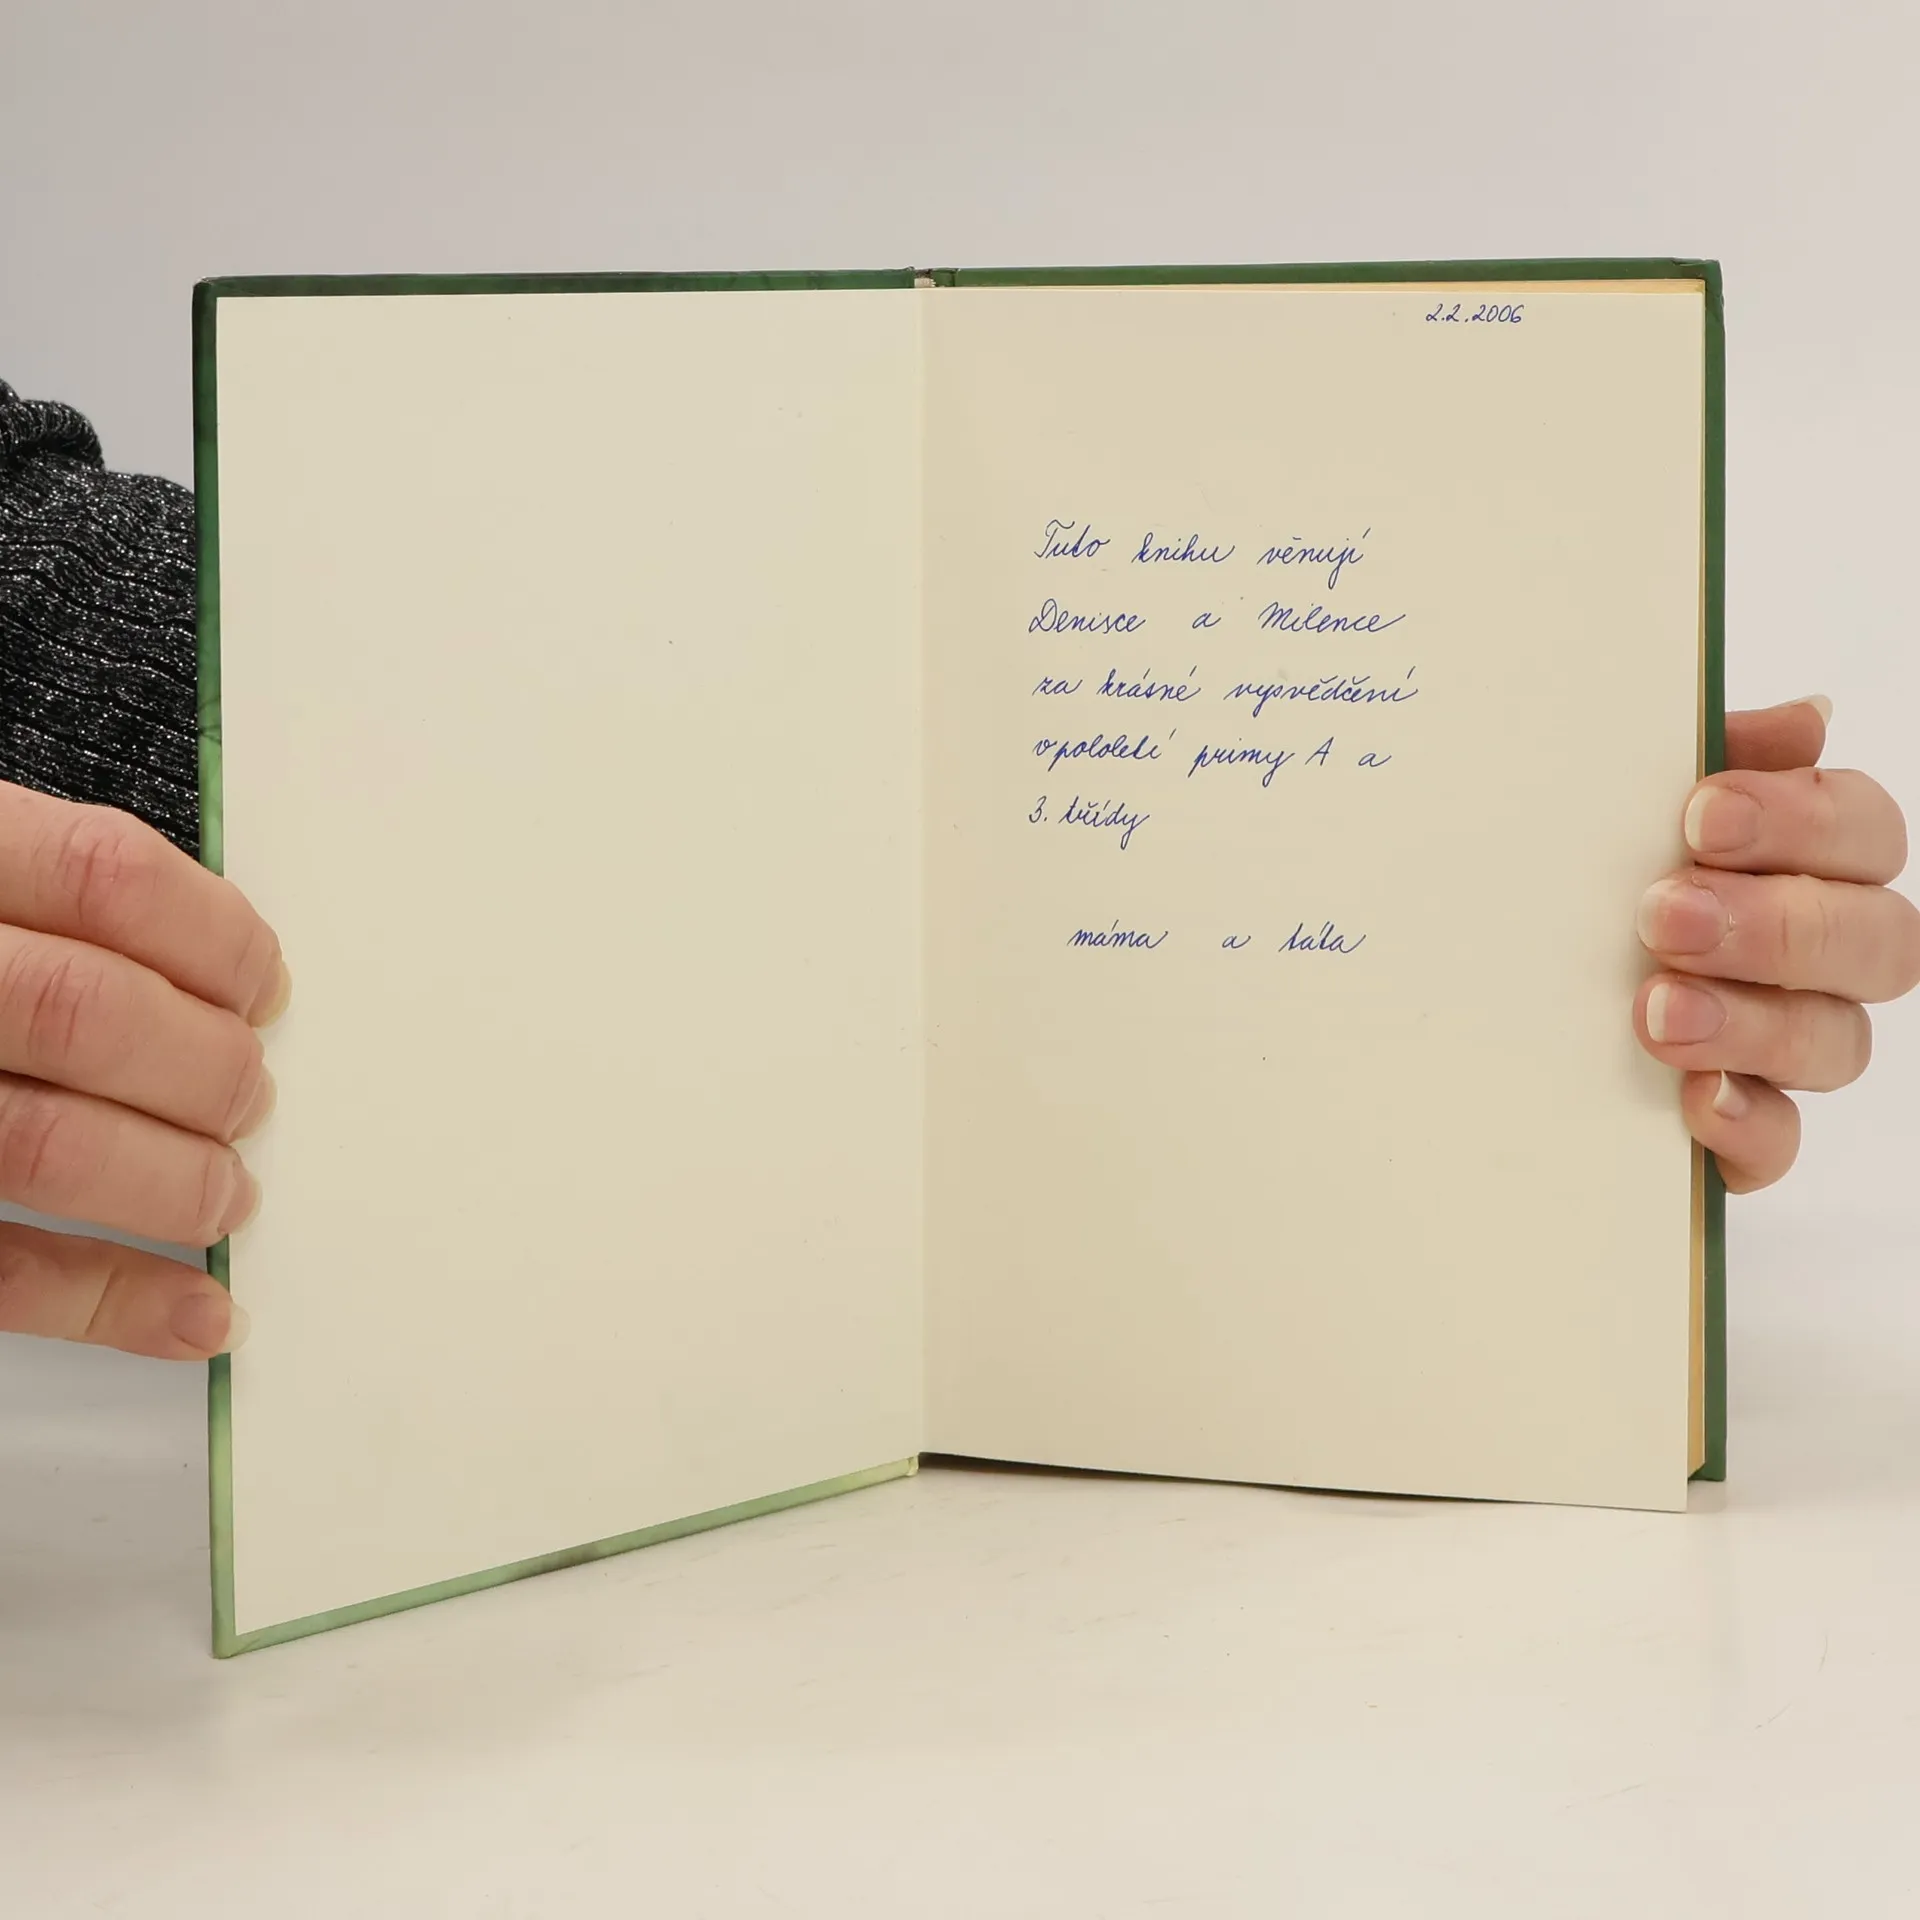 2.2.2006
Tuto knihu věnují
Denisce a Milence
za krásné vysvědčení
v pololetí primy A a
3. třídy
máma a táta